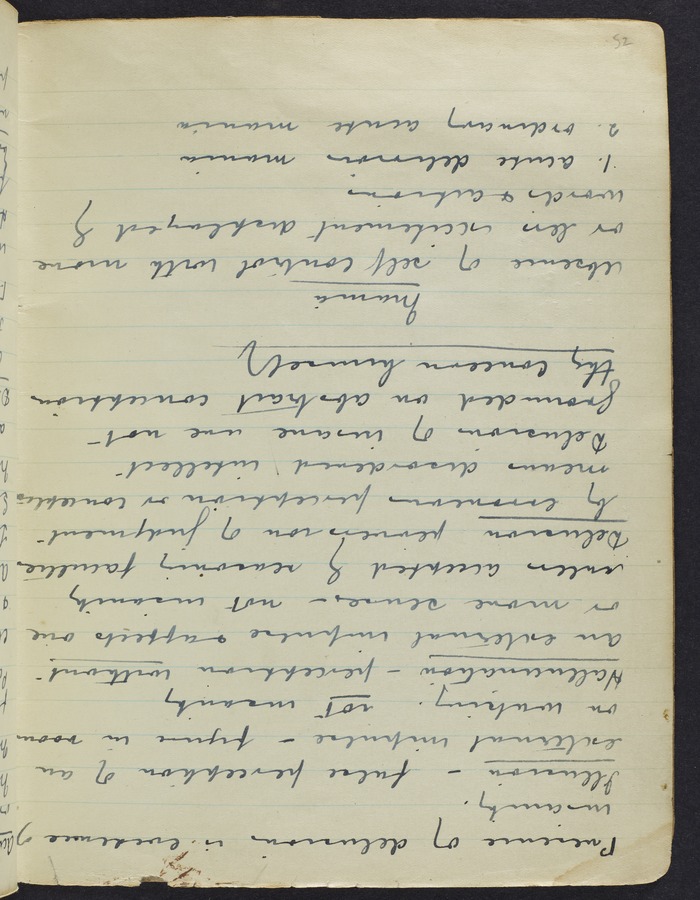 Presence of delusion is evidence of
insanity.
Illusion - false perception of an
external impulse - figure in room
on waking. not insanity
Hallucination - perception without
an external impulse & affects one
or more senses - not insanity
unless accepted by reasoning faculties
Delusion perversion of judgment
by erroneous perception or conception
means disordered intellect
Delusions of insane are not
grounded on abstract conception
they concern himself
Mania
Absence of self control with more
or less excitement displayed by
words & actions
1. acute delusions mania
2. ordinary acute mania
52